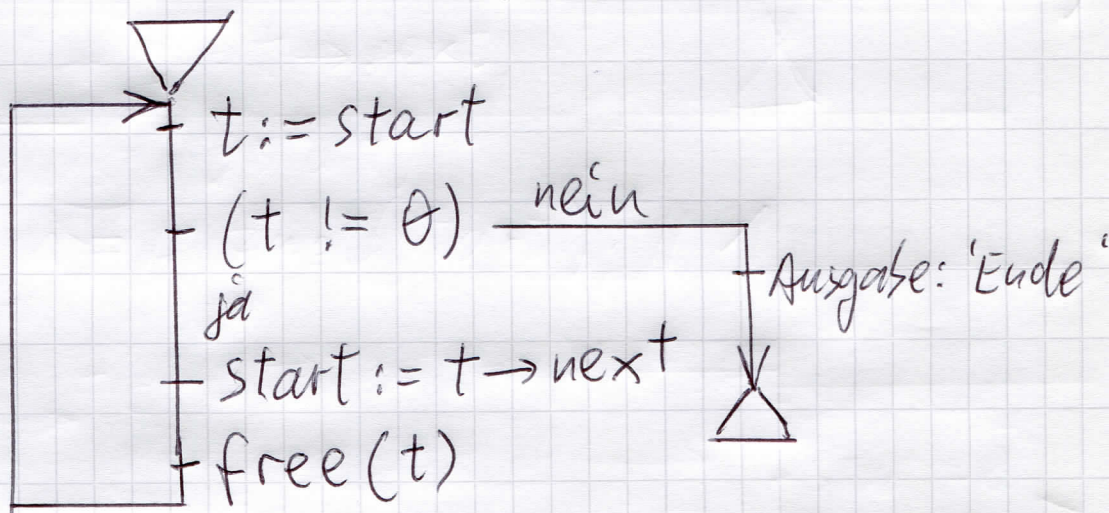 t := start
(t != 0) nein
Ausgabe: 'Ende'
ja
start := t → next
free (t)